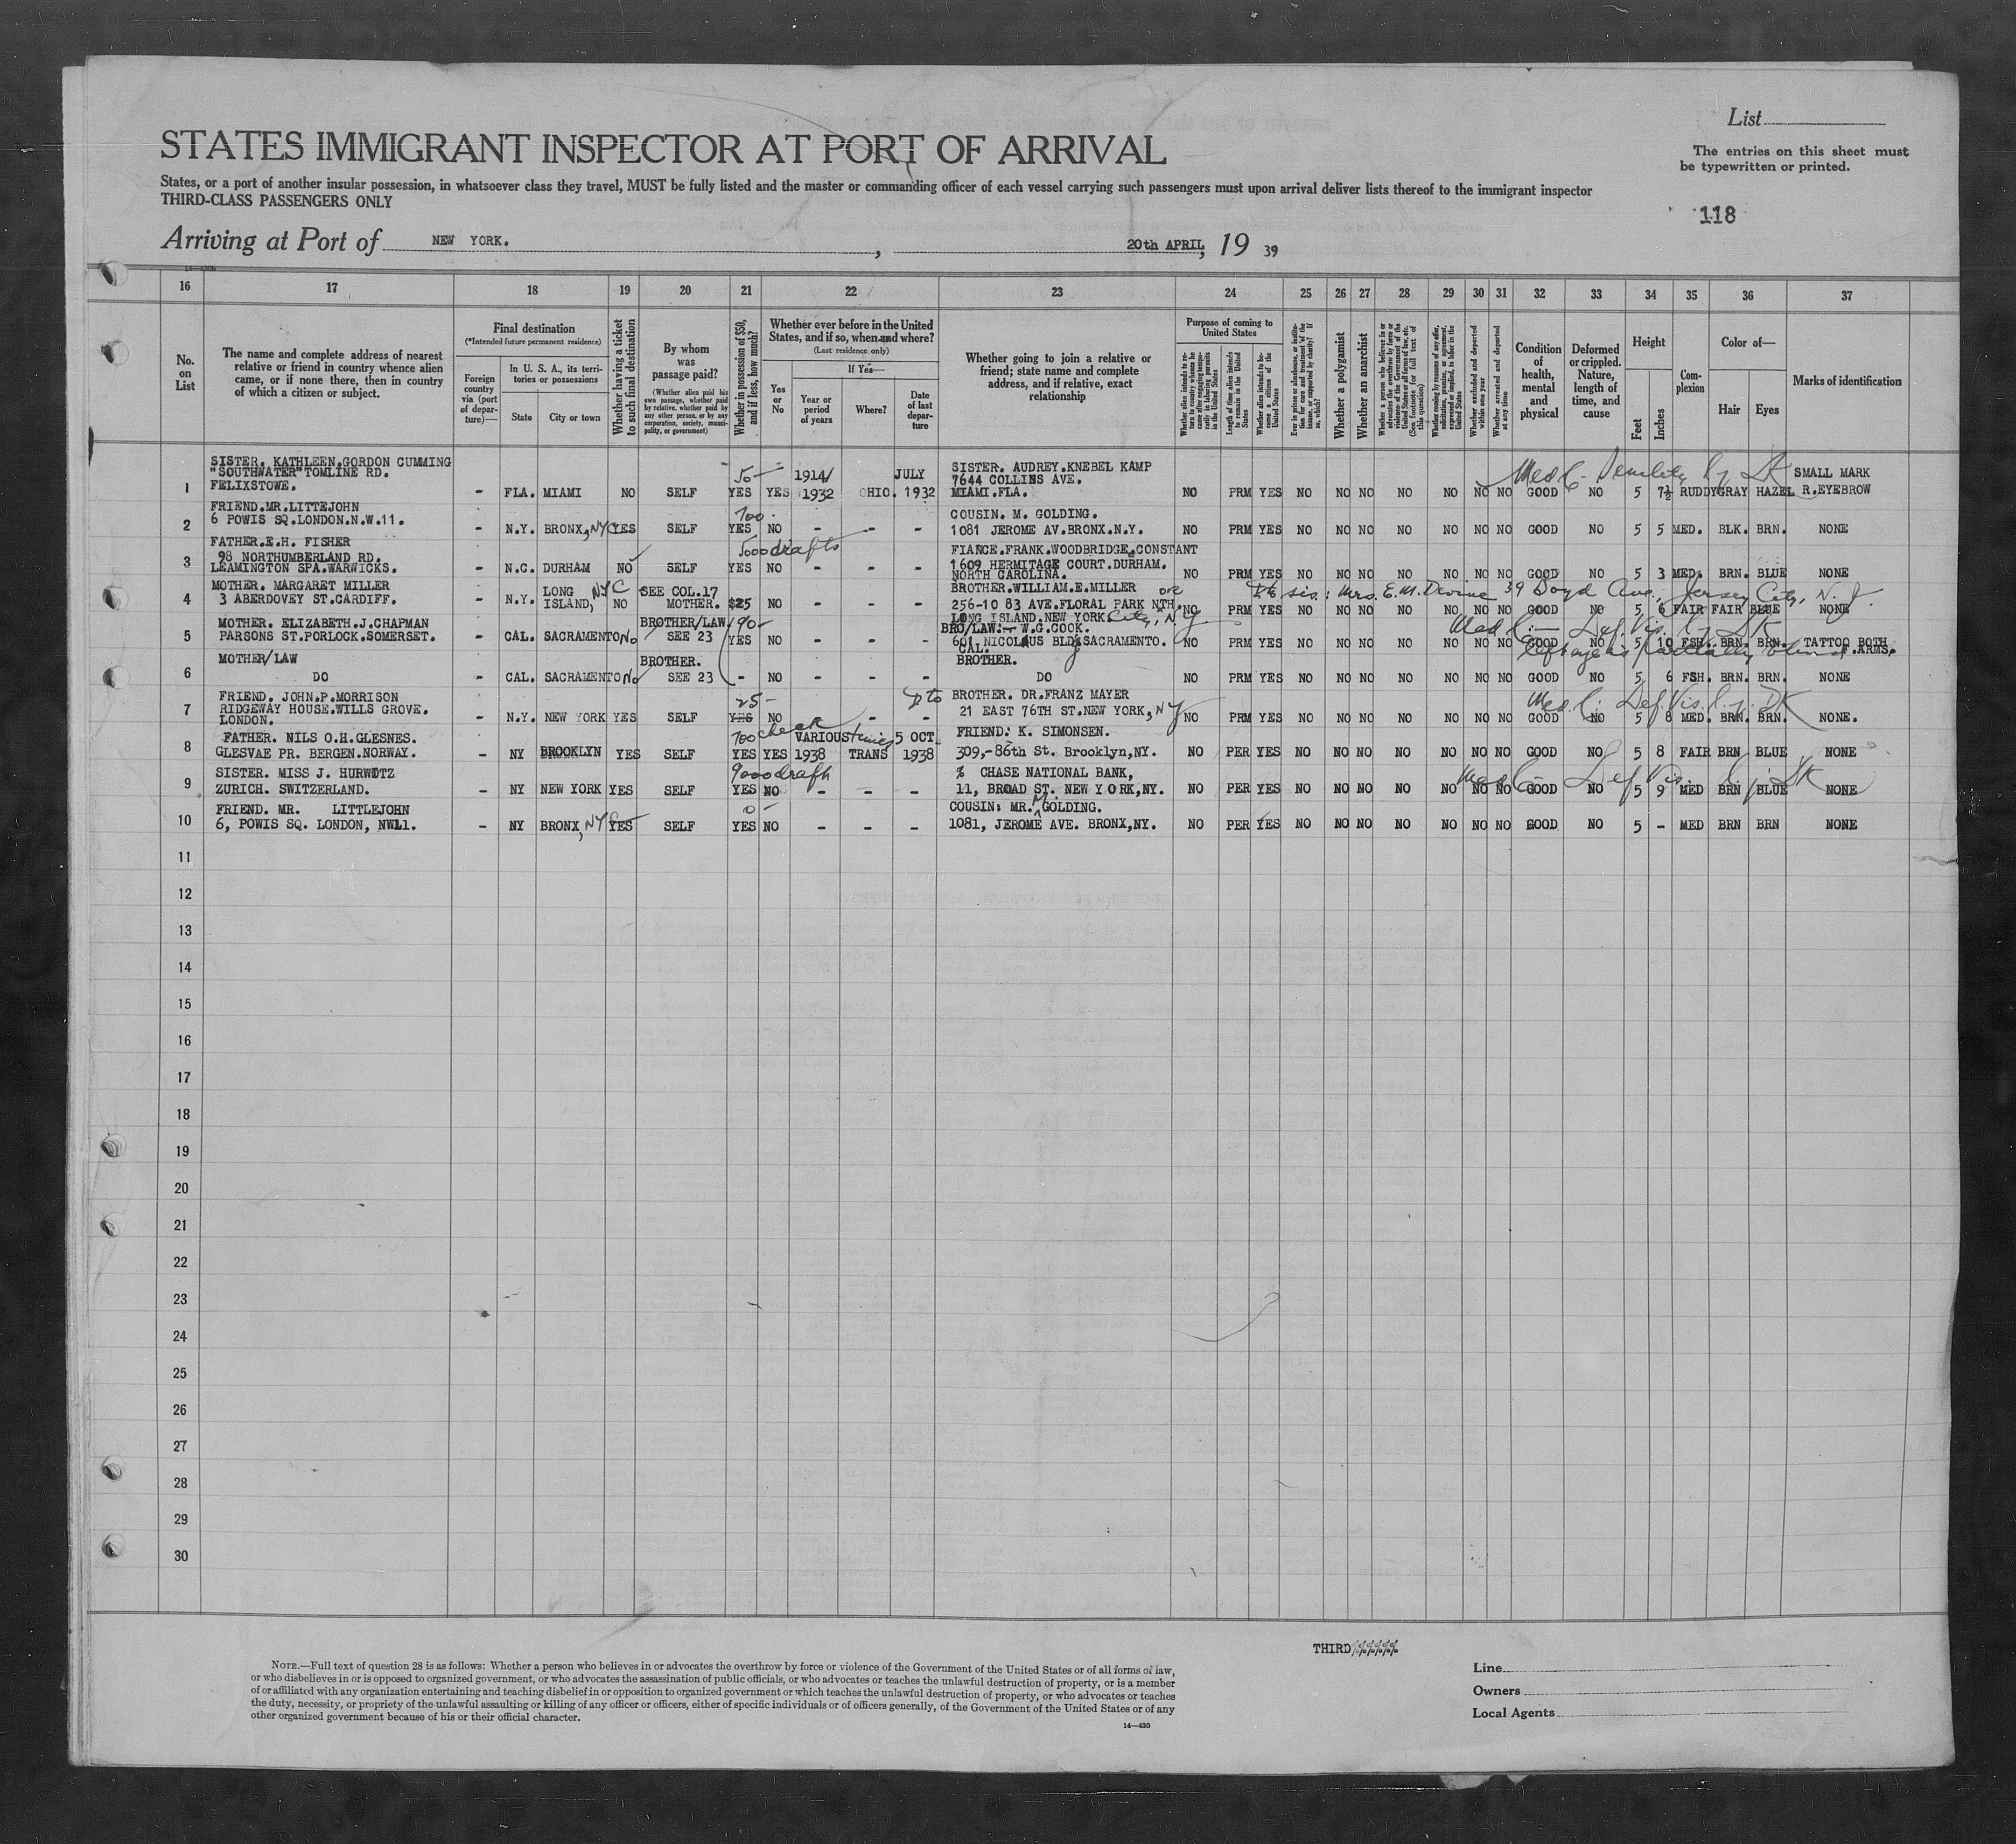 List
STATES IMMIGRANT INSPECTOR AT PORT OF ARRIVAL
The entries on this sheet must
be typewritten or printed.
States, or a port of another insular possession, in whatsoever class they travel, MUST be fully listed and the master or commanding officer of each vessel carrying such passengers must upon arrival deliver lists thereof to the immigrant inspector
THIRD-CLASS PASSENGERS ONLY
118
Arriving at Port of NEW YORK. , 20th APRIL, 19 39
16 17 18 19 20 21 22 23 24 25 26 27 28 29 30 31 32 33 34 35 36 37
No. on List
The name and complete address of nearest relative or friend in country whence alien came, or if none there, then in country of which a citizen or subject.
Final destination
(*Intended future permanent residence)
Foreign country via (port of departure)—
In U. S. A., its territories or possessions
State
City or town
Whether having a ticket to such final destination
By whom was passage paid?
(Whether alien paid his own passage, whether paid by relative, whether paid by any other person, or by any corporation, society, municipality, or government)
Whether in possession of $50, and if less, how much?
Whether ever before in the United States, and if so, when and where?
(Last residence only)
Yes or No
If Yes—
Year or period of years
Where?
Date of last departure
Whether going to join a relative or friend; state name and complete address, and if relative, exact relationship
Purpose of coming to United States
Length of time alien intends to remain in the United States
Whether alien intends to become a citizen of the United States
Whether a polygamist
Whether an anarchist
Whether excluded and deported within one year
Whether arrested and deported at any time
Condition of health, mental and physical
Deformed or crippled. Nature, length of time, and cause
Height
Feet
Inches
Complexion
Color of—
Hair
Eyes
Marks of identification
SISTER. KATHLEEN.GORDON CUMMING 50- 1914/ JULY SISTER. AUDREY.KNEBEL KAMP SMALL MARK
"SOUTHWATER" TOMLINE RD. 7644 COLLINS AVE.
1 FELIXSTOWE. - FLA. MIAMI NO SELF YES YES 1932 OHIO. 1932 MIAMI.FLA. NO PRM YES NO NO NO NO NO NO NO GOOD NO 5 7½ RUDDY GRAY HAZEL R.EYEBROW
FRIEND.MR.LITTEJOHN 700. COUSIN. M. GOLDING.
2 6 POWIS SQ.LONDON.N.W.11. - N.Y. BRONX, NYC YES SELF YES NO - - - 1081 JEROME AV.BRONX.N.Y. NO PRM YES NO NO NO NO NO NO NO GOOD NO 5 5 MED. BLK. BRN. NONE
FATHER.E.H. FISHER 5000 drafts FIANCE.FRANK.WOODBRIDGE.CONSTANT
98 NORTHUMBERLAND RD. 1609 HERMITAGE COURT.DURHAM.
3 LEAMINGTON SPA.WARWICKS. - N.C. DURHAM NO SELF YES NO - - - NORTH CAROLINA. NO PRM YES NO NO NO NO NO NO NO GOOD NO 5 3 MED. BRN. BLUE NONE
MOTHER. MARGARET MILLER LONG NYC SEE COL.17 BROTHER.WILLIAM.E.MILLER sis: Mrs. E.M. Devine 39 Boyd Ave., Jersey City, N.J.
4 3 ABERDOVEY ST.CARDIFF. - N.Y. ISLAND, NO MOTHER. $25 NO - - - 256-10 83 AVE.FLORAL PARK NTH. NO PRM YES NO NO NO NO NO NO NO GOOD NO 5 6 FAIR FAIR BLUE NONE
LONG ISLAND.NEW YORK City, NY
MOTHER. ELIZABETH.J.CHAPMAN BROTHER/LAW 90- BRO/LAW:- W.G.COOK. Med C:- Def. Vis.
5 PARSONS ST.PORLOCK.SOMERSET. - CAL. SACRAMENTO No SEE 23 YES NO - - - 601.NICOLAUS BLDg SACRAMENTO. CAL. NO PRM YES NO NO NO NO NO NO NO GOOD NO 5 10 FSH. BRN. BRN. TATTOO BOTH F.ARMS.
left eye is partially blind
MOTHER/LAW BROTHER. BROTHER.
6 DO - CAL. SACRAMENTO No SEE 23 - NO - - - DO NO PRM YES NO NO NO NO NO NO NO GOOD NO 5 6 FSH. BRN. BRN. NONE
FRIEND. JOHN.P.MORRISON 25- BROTHER. DR.FRANZ MAYER Med C: Def. Vis.
RIDGEWAY HOUSE.WILLS GROVE.
7 LONDON. - N.Y. NEW YORK YES SELF YES NO - - 21 EAST 76TH ST.NEW YORK, NY NO PRM YES NO NO NO NO NO NO NO GOOD NO 5 8 MED. BRN. BRN. NONE.
FATHER. NILS O.H.GLESNES. 700 check VARIOUS times 5 OCT. FRIEND: K. SIMONSEN.
8 GLESVAE PR. BERGEN.NORWAY. - NY BROOKLYN YES SELF YES YES 1938 TRANS 1938 309,-86th St. Brooklyn,NY. NO PER YES NO NO NO NO NO NO NO GOOD NO 5 8 FAIR BRN BLUE NONE
SISTER. MISS J. HURWOTZ 9000 draft % CHASE NATIONAL BANK, Med C- Def Vis.
9 ZURICH. SWITZERLAND. - NY NEW YORK YES SELF YES NO - - - 11, BROAD ST. NEW YORK,NY. NO PER YES NO NO NO NO NO NO NO GOOD NO 5 9 MED BRN BLUE NONE
FRIEND. MR. LITTLEJOHN COUSIN: MR. M. GOLDING.
10 6, POWIS SQ. LONDON, NW11. - NY BRONX, NY YES SELF YES NO - - - 1081, JEROME AVE. BRONX,NY. NO PER YES NO NO NO NO NO NO NO GOOD NO 5 - MED BRN BRN NONE
11
12
13
14
15
16
17
18
19
20
21
22
23
24
25
26
27
28
29
30
THIRD
NOTE.—Full text of question 28 is as follows: Whether a person who believes in or advocates the overthrow by force or violence of the Government of the United States or of all forms of law,
or who disbelieves in or is opposed to organized government, or who advocates the assassination of public officials, or who advocates or teaches the unlawful destruction of property, or is a member
of or affiliated with any organization entertaining and teaching disbelief in or opposition to organized government or which teaches the unlawful destruction of property, or who advocates or teaches
the duty, necessity, or propriety of the unlawful assaulting or killing of any officer or officers, either of specific individuals or of officers generally, of the Government of the United States or of any
other organized government because of his or their official character.
14—430
Line
Owners
Local Agents